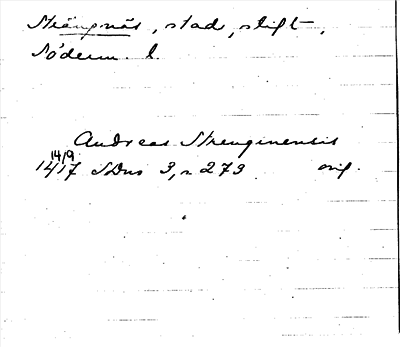 Strängnäs, stad, stift,
Söderm. l.
Andreas Strenginensis
1419
1417 SDns 3, n 273 orig.